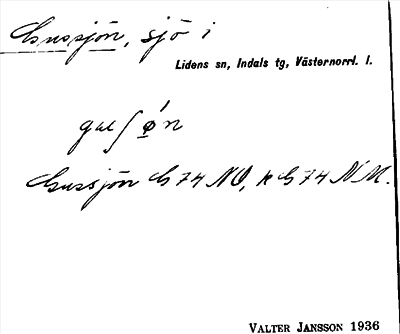 Gussjön, sjö i
Lidens sn, Indals tg, Västernorrl. l.
Gussjön G 74 NO, k G 74 NM.
VALTER JANSSON 1936